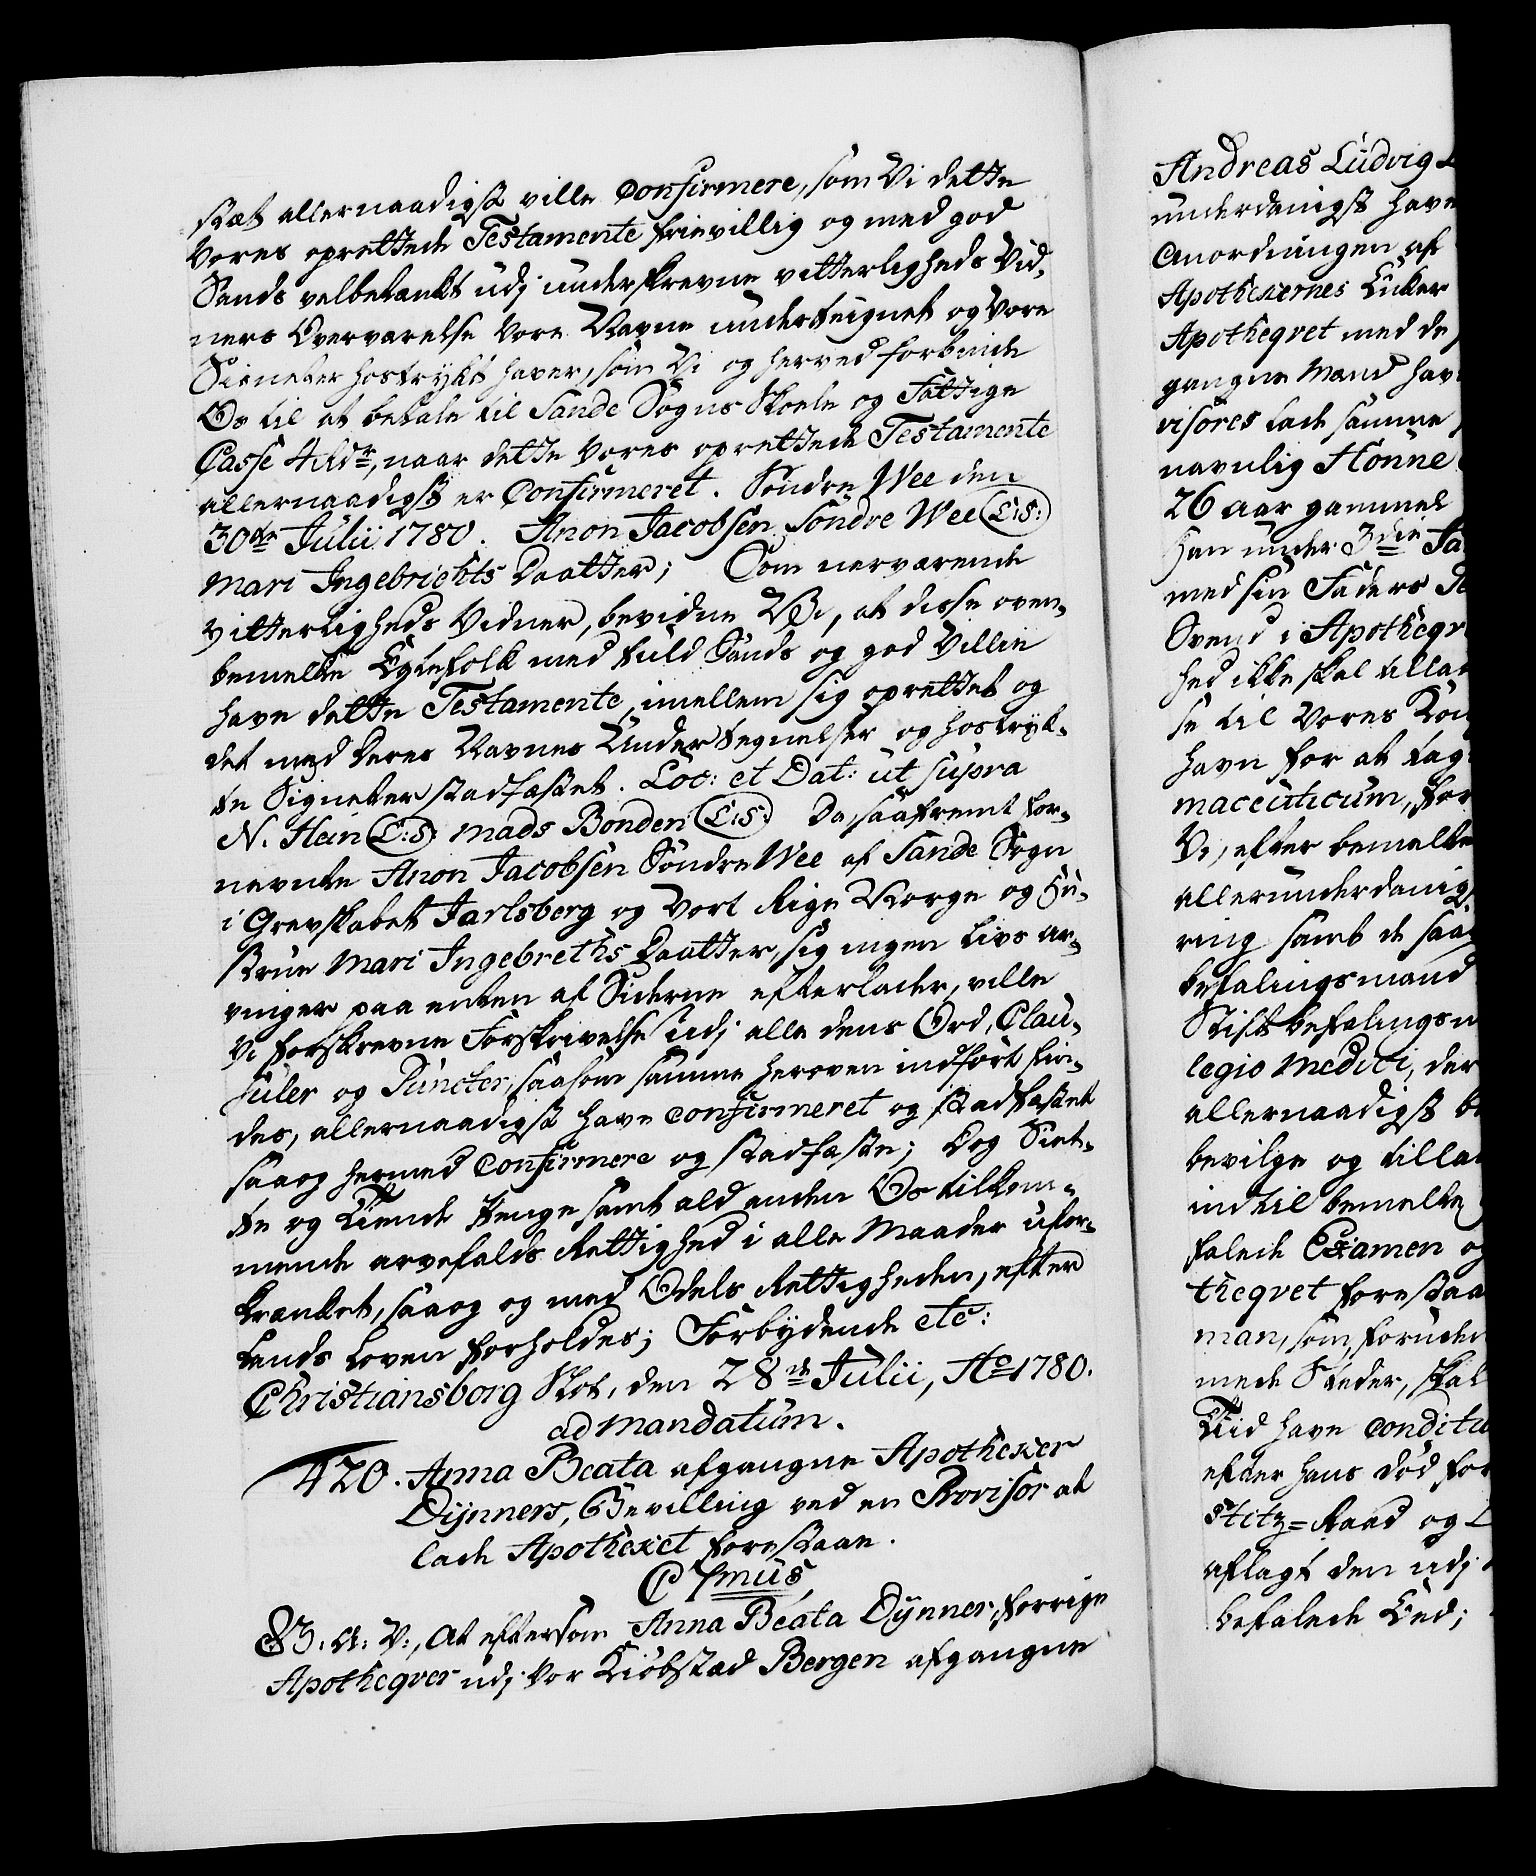 stæt allernaadigst ville Confirmere, som Vi dette
Vores oprettede Testamente frievillig og med god
Sands velbetænkt udj underskrevne vitterligheds Vid-
ners Overværelse Vore Navne undertegnet og Vore
Signeter hostrykt haver, som Vi og herved forbinde
Os til at betale til Sande Sogns Skoele og Fattige
Casse 4 rdr, naar dette Vores oprettede Testamente
allernaadigst er Confirmeret. Søndre Wee den
30te Julii 1780. Anon Jacobsen Søndre Wee (L:S:)
Mari Ingebrichts Daatter; Som nærværende
Vitterligheds Vidner, bevidne Vi, at disse oven-
bemelte Egtefolk med fuld Sands og god Villie
have dette Testamente imellem sig oprettet og
det med deres Navnes Undertegnelser og hostryk-
te Signeter stadfæstet. Loc: et Dat: ut supra
N. Hein (L:S:) Mads Bonden (L:S:) Da, saafremt for-
nevnte Anon Jacobsen Søndre Wee af Sande Sogn
i Grevskabet Jarlsberg og Vort Rige Norge og Hu-
strue Mari Ingebreths Daatter, sig ingen Livs ar-
vinger paa enten af Siderne efterlader, ville
Vi forskrevne Forskrivelse udj alle dens Ord, Clau-
suler og Puncter, saasom samme heroven indført fin-
des, allernaadigst have confirmeret og stadfæstet
saaog hermed Confirmere og stadfæste; Dog Siet-
te og Tiende Penge samt ald anden Os tilkom-
mende arvefalds Rettighed i alle Maader ufor-
krænket, saaog og med Odels Rettigheden, efter
Lands Loven forholdes; Forbydende etc:
Christiansborg Slot, den 28de Julii, Ao 1780.
ad mandatum.
420. Anna Beata afgangne Apotheker
Dynners, Bevilling ved en Provisor at
lade Apotheket forestaae.
C 7mus,
G. A. V., At eftersom Anna Beata Dynner, forrige
Apotheqver udj Vor Kiøbstæd Bergen afgangne
Andreas Ludvig
underdanigst have
Anordningen af
Apothekernes Enker
Apotheqvet med de
gangne Mand hav
visores lade samme
navnlig Hönne
26 aar gammel
han under 3die Ja
med sin Faders
Svend i Apotheqv
hed ikke skal tillad
se til Vores Kon
havn for at tag
maceuticum, for
Vi, efter bemelte
allerunderdanigs
ring samt de saa
befalingsmand
Stiftbefalingsm
legio Medici, der
allernaadigst be
bevilge og tillad
indtil bemelte
falede Examen og
theqvet forestaa
man, som, foruden
mede Steder, skal
Tiid have conditio
efter hans død for
stitz=Raad og
aflagt den udj
befalede Eed;